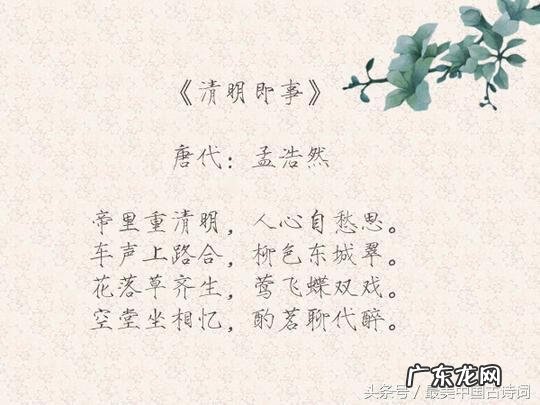 《清明即事》
唐代：孟浩然
帝里重清明，人心自愁思。
车声上路合，柳色东城翠。
花落草齐生，莺飞蝶双戏。
空堂坐相忆，酌茗聊代醉。
广东龙网
头条号／最美中国古诗词